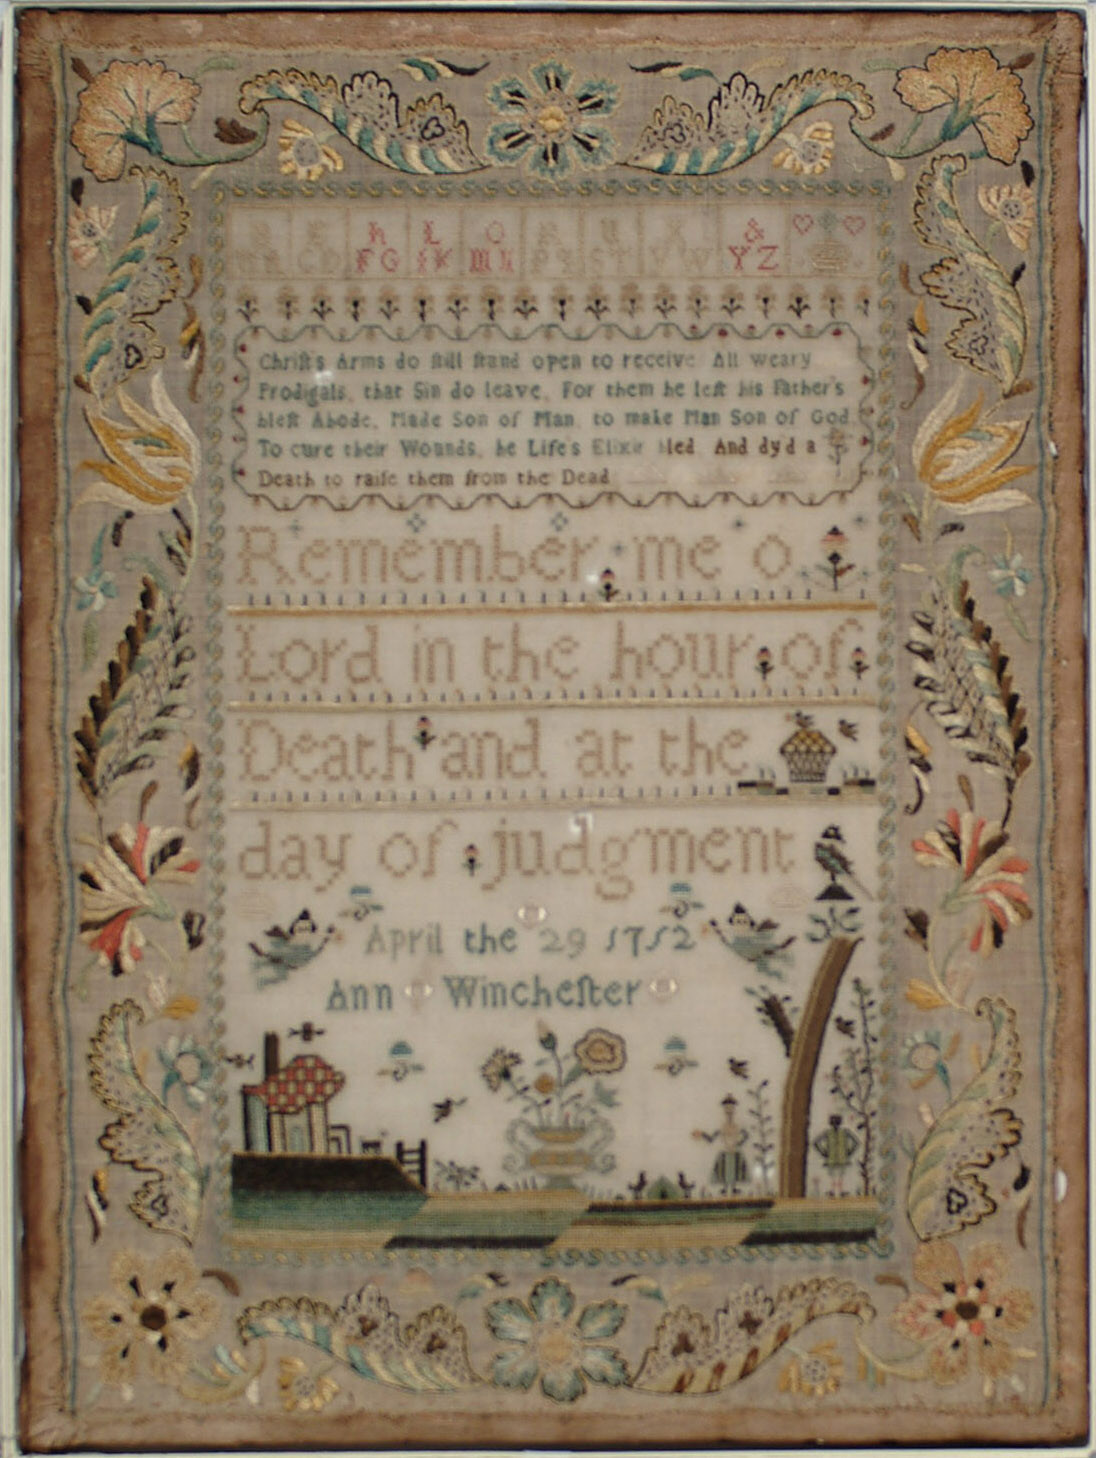 h L O &
FG YZ
Chriſt's Arms do ſtill ſtand open to receive All weary
Prodigals, that Sin do leave, For them he left his Father's
bleſt Abode, Made Son of Man, to make Man Son of God
To cure their Wounds, he Life's Elixir bled And dyd a
Death to raiſe them from the Dead
Remember me o
Lord in the hour of
Death and at the
day of judgment
April the 29 1752
Ann Wincheſter